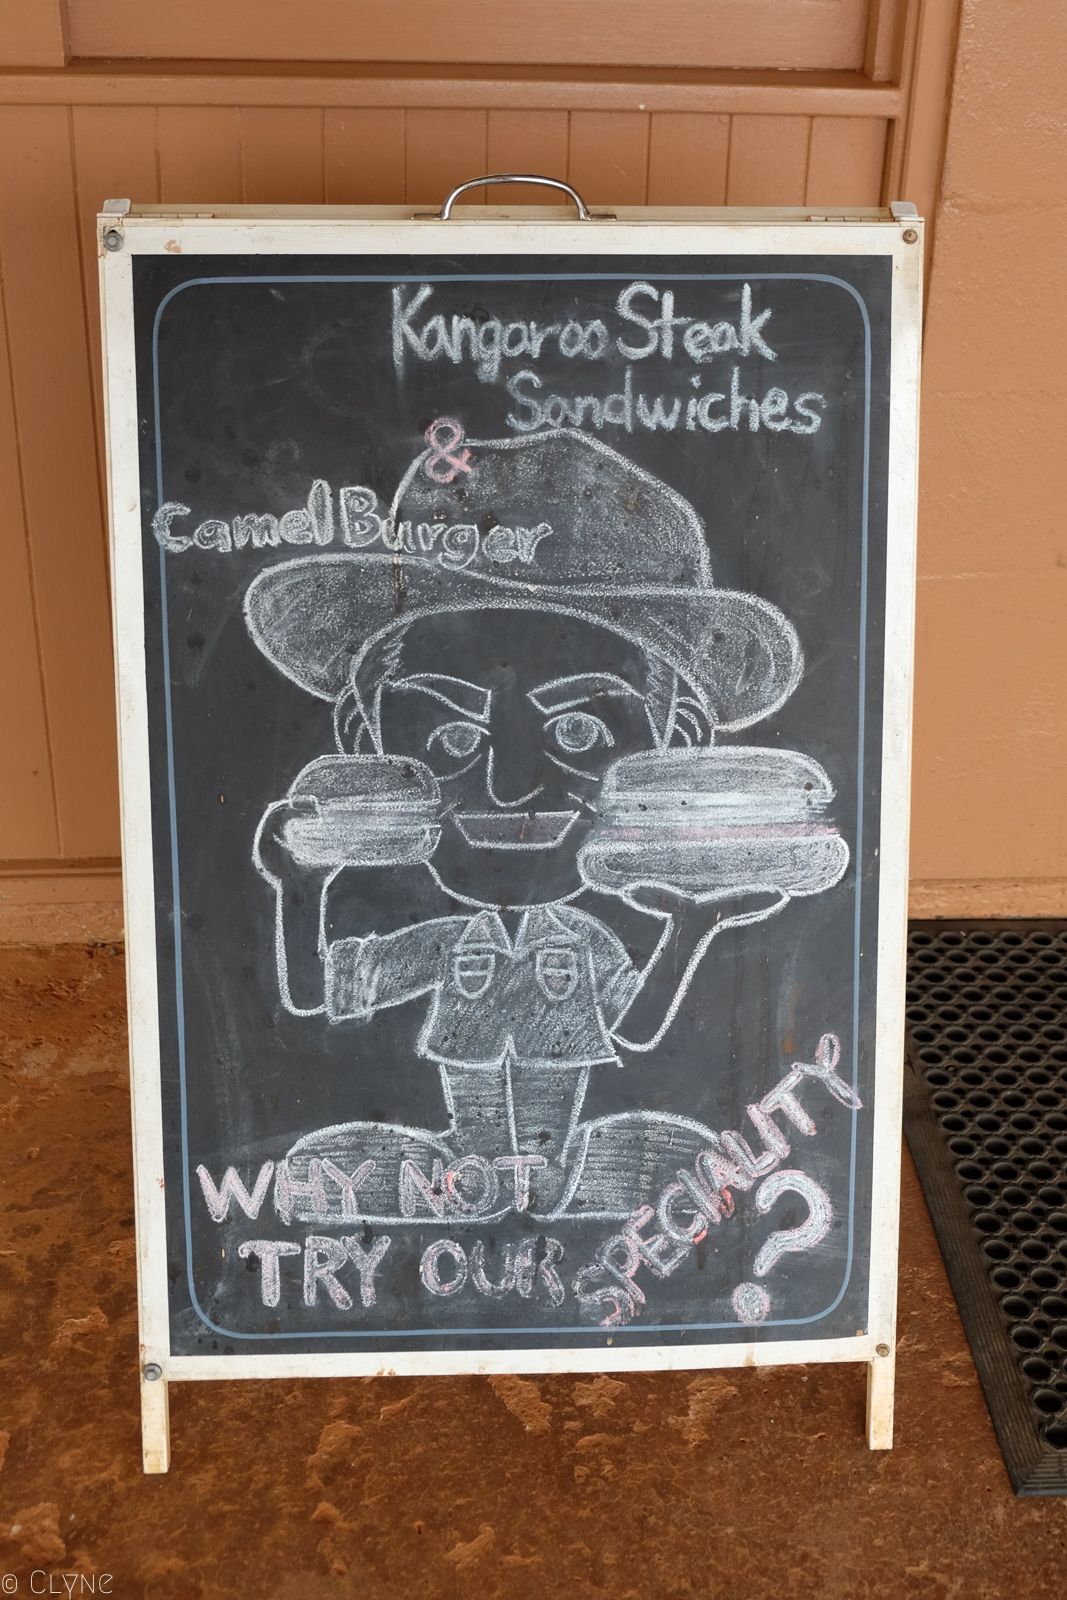 Kangaroo Steak
Sandwiches
&
Camel Burger
WHY NOT
TRY OUR SPECIALITY
?
© CLYNE